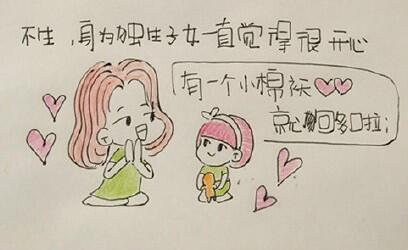 不生，身为独生子女一直觉得很开心
有一个小棉袄
就心满多啦；